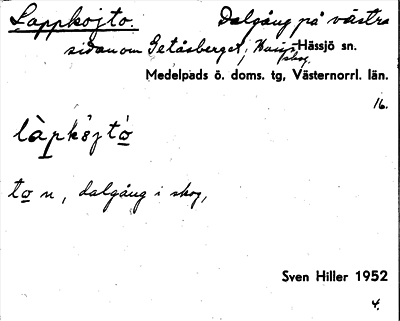 Lappkojto. Dalgång på västra
sidan om Getåsberget, Hässjö sn.
skog.
Medelpads ö. doms. tg, Västernorrl. län.
16.
làpkòjto
to n, dalgång i skog,
Sven Hiller 1952
4.